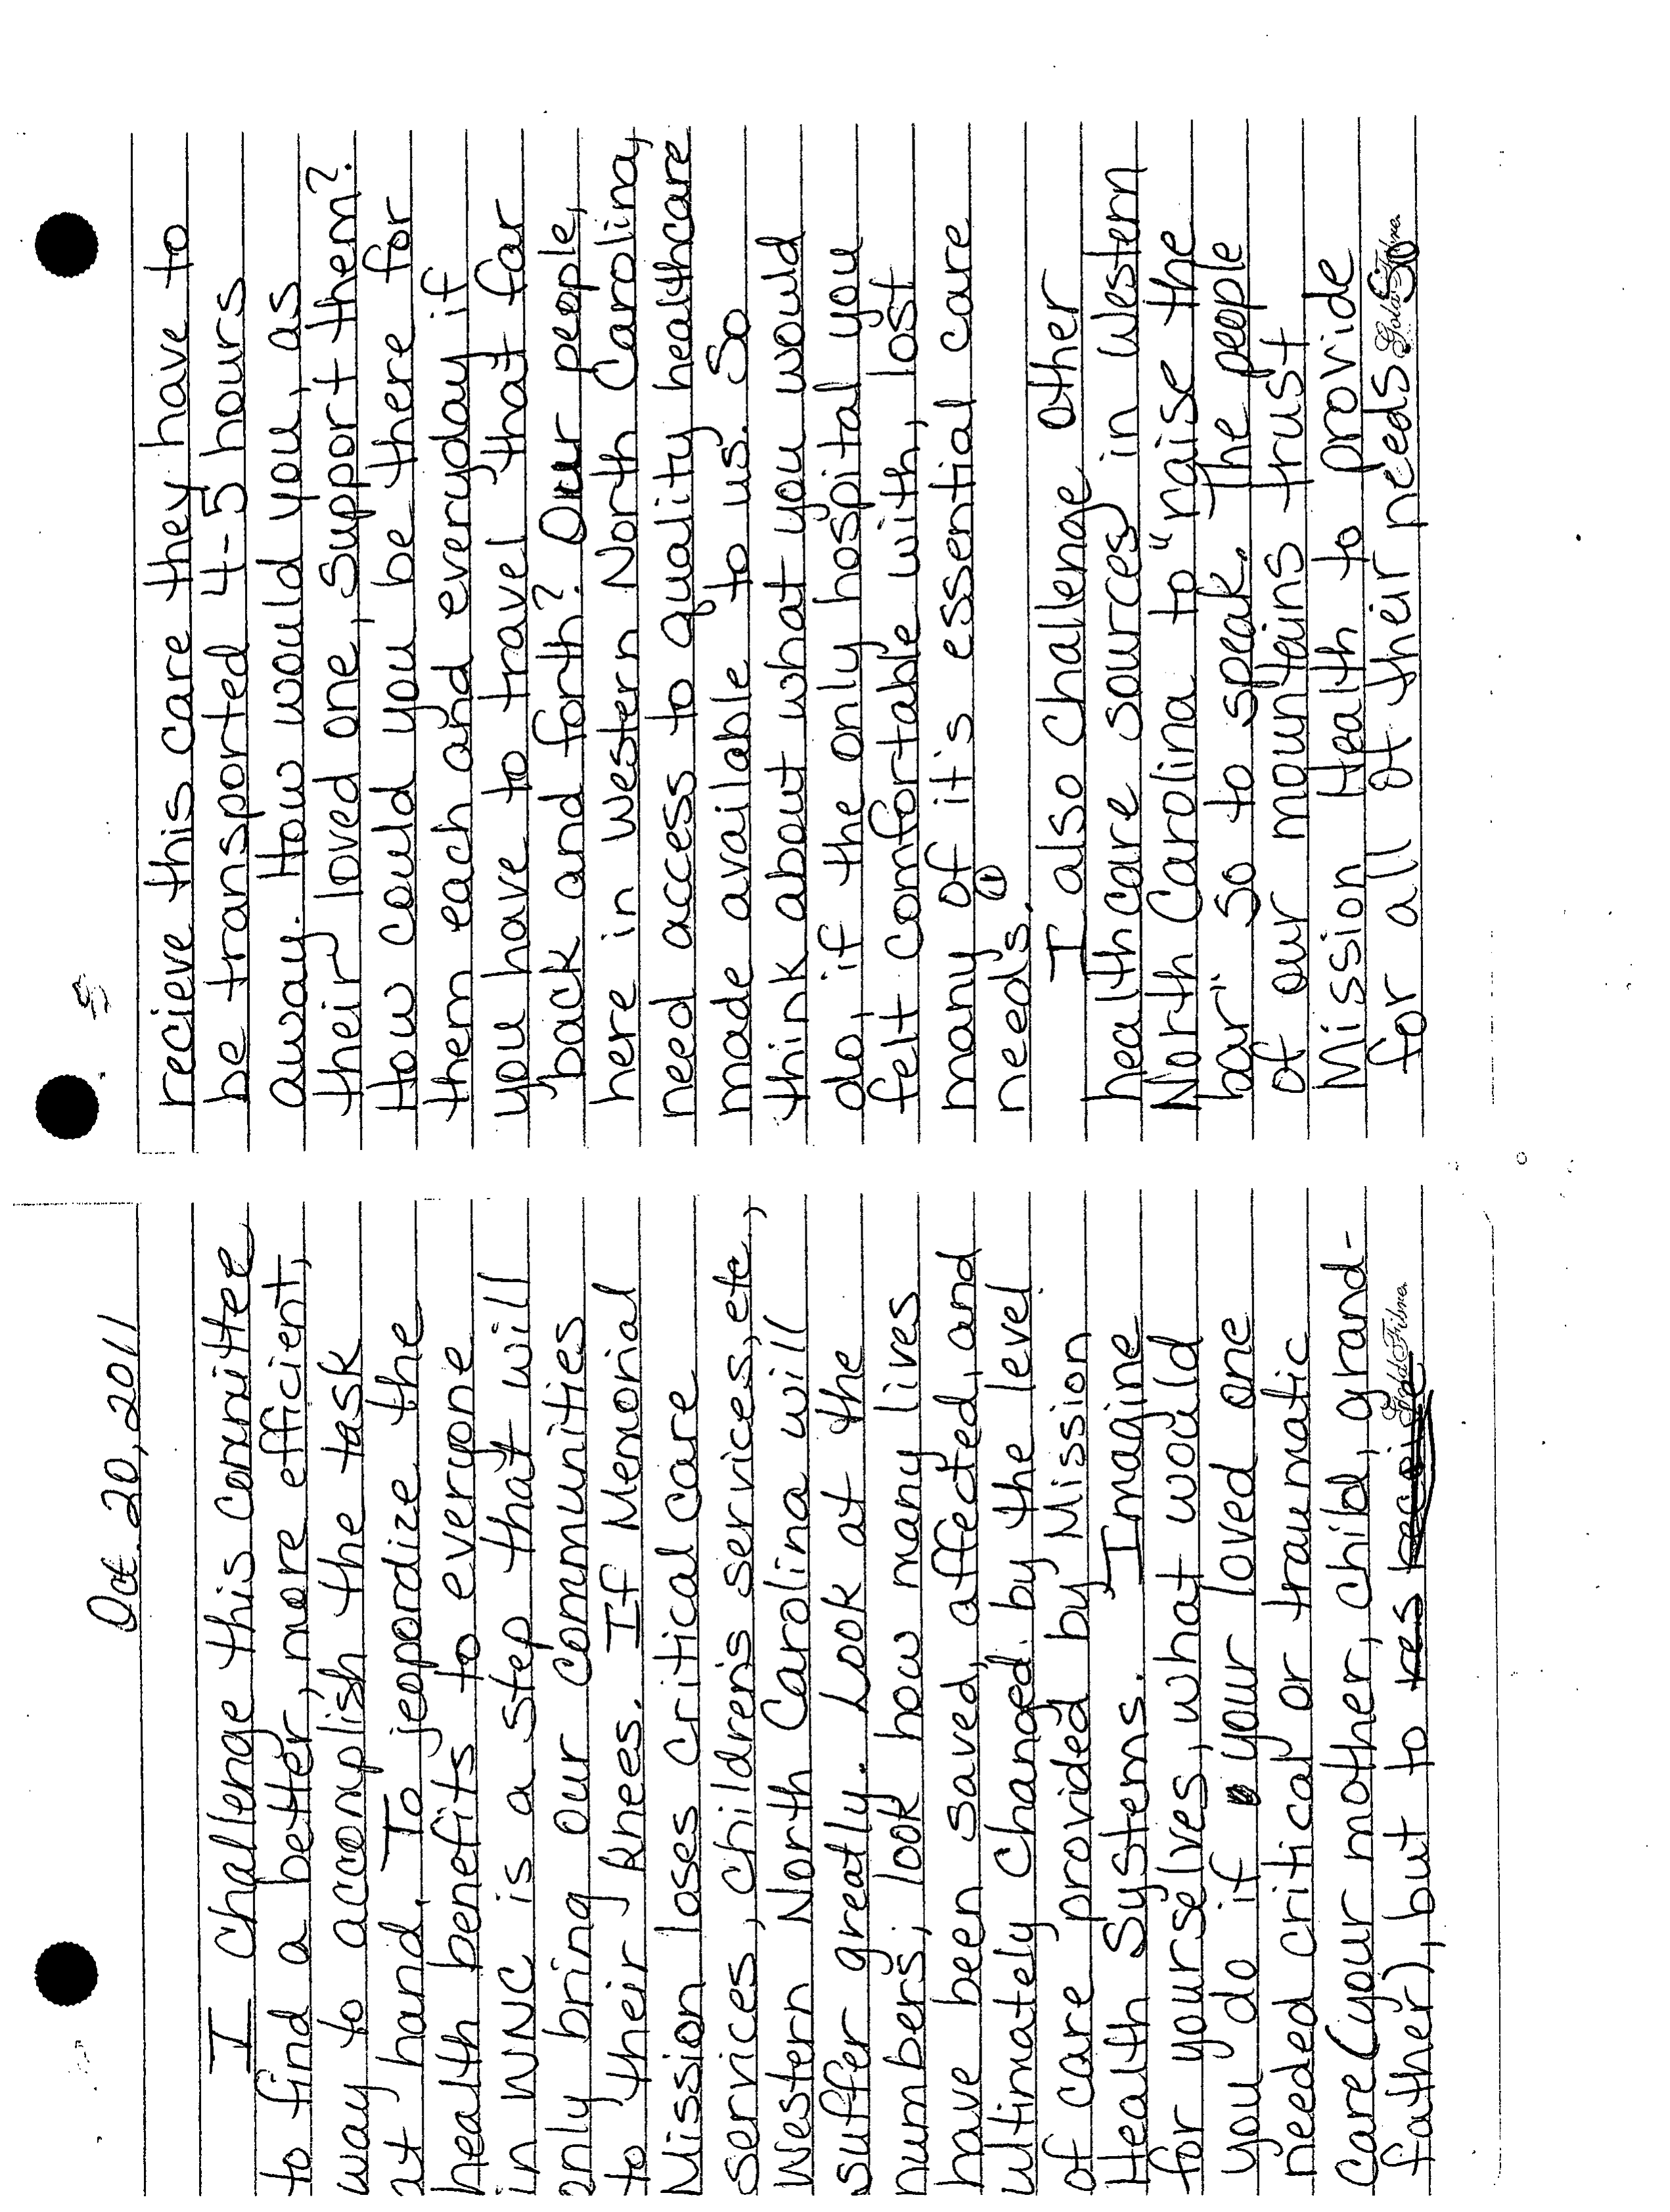 Oct. 20, 2011
I challenge this committee
to find a better, more efficient,
way to accomplish the task
at hand. To jeopordize the
health benefits to everyone
in WNC is a step that will
only bring our communities
to their knees. If Memorial
Mission loses critical care
services, children's services, etc.,
Western North Carolina will
suffer greatly. Look at the
numbers; look how many lives
have been saved, affected, and
ultimately changed by the level
of care provided by Mission
Health Systems. Imagine
for yourselves, what would
you do if your loved one
needed critical or traumatic
care (your mother, child, grand-
father), but to
Gold Fibre
recieve this care they have to
be transported 4-5 hours
away. How would you, as
their loved one, support them?
How could you be there for
them each and everyday if
you have to travel that far
back and forth? Our people,
here in Western North Carolina,
need access to quality healthcare
made available to us. So
think about what you would
do, if the only hospital you
felt comfortable with, lost
many of it's essential care
needs.
I also challenge other
healthcare sources in Western
North Carolina to "raise the
bar" so to speak. The people
of our mountains trust
Mission Health to provide
for all of their needs so
Gold Fibre